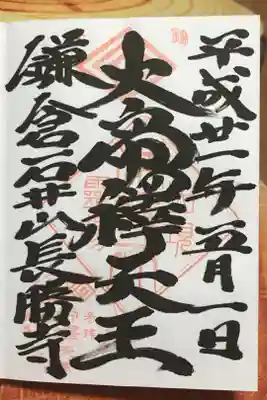 平成廿一年五月一日
大帝釋天王
鎌倉石井山長勝寺